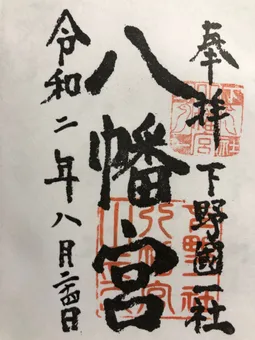 奉拝 下野國一社
八幡宮
令和二年八月二十四日